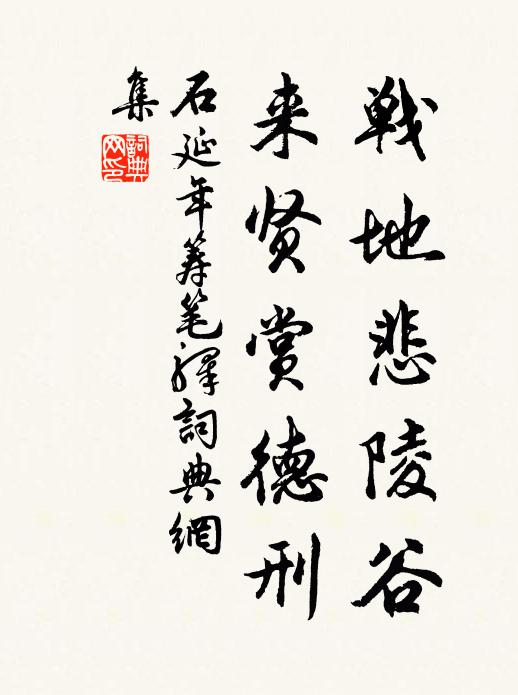 戦地悲陵谷
来贤赏德刑
石延年筹笔驛詞典網
集
詞典网印